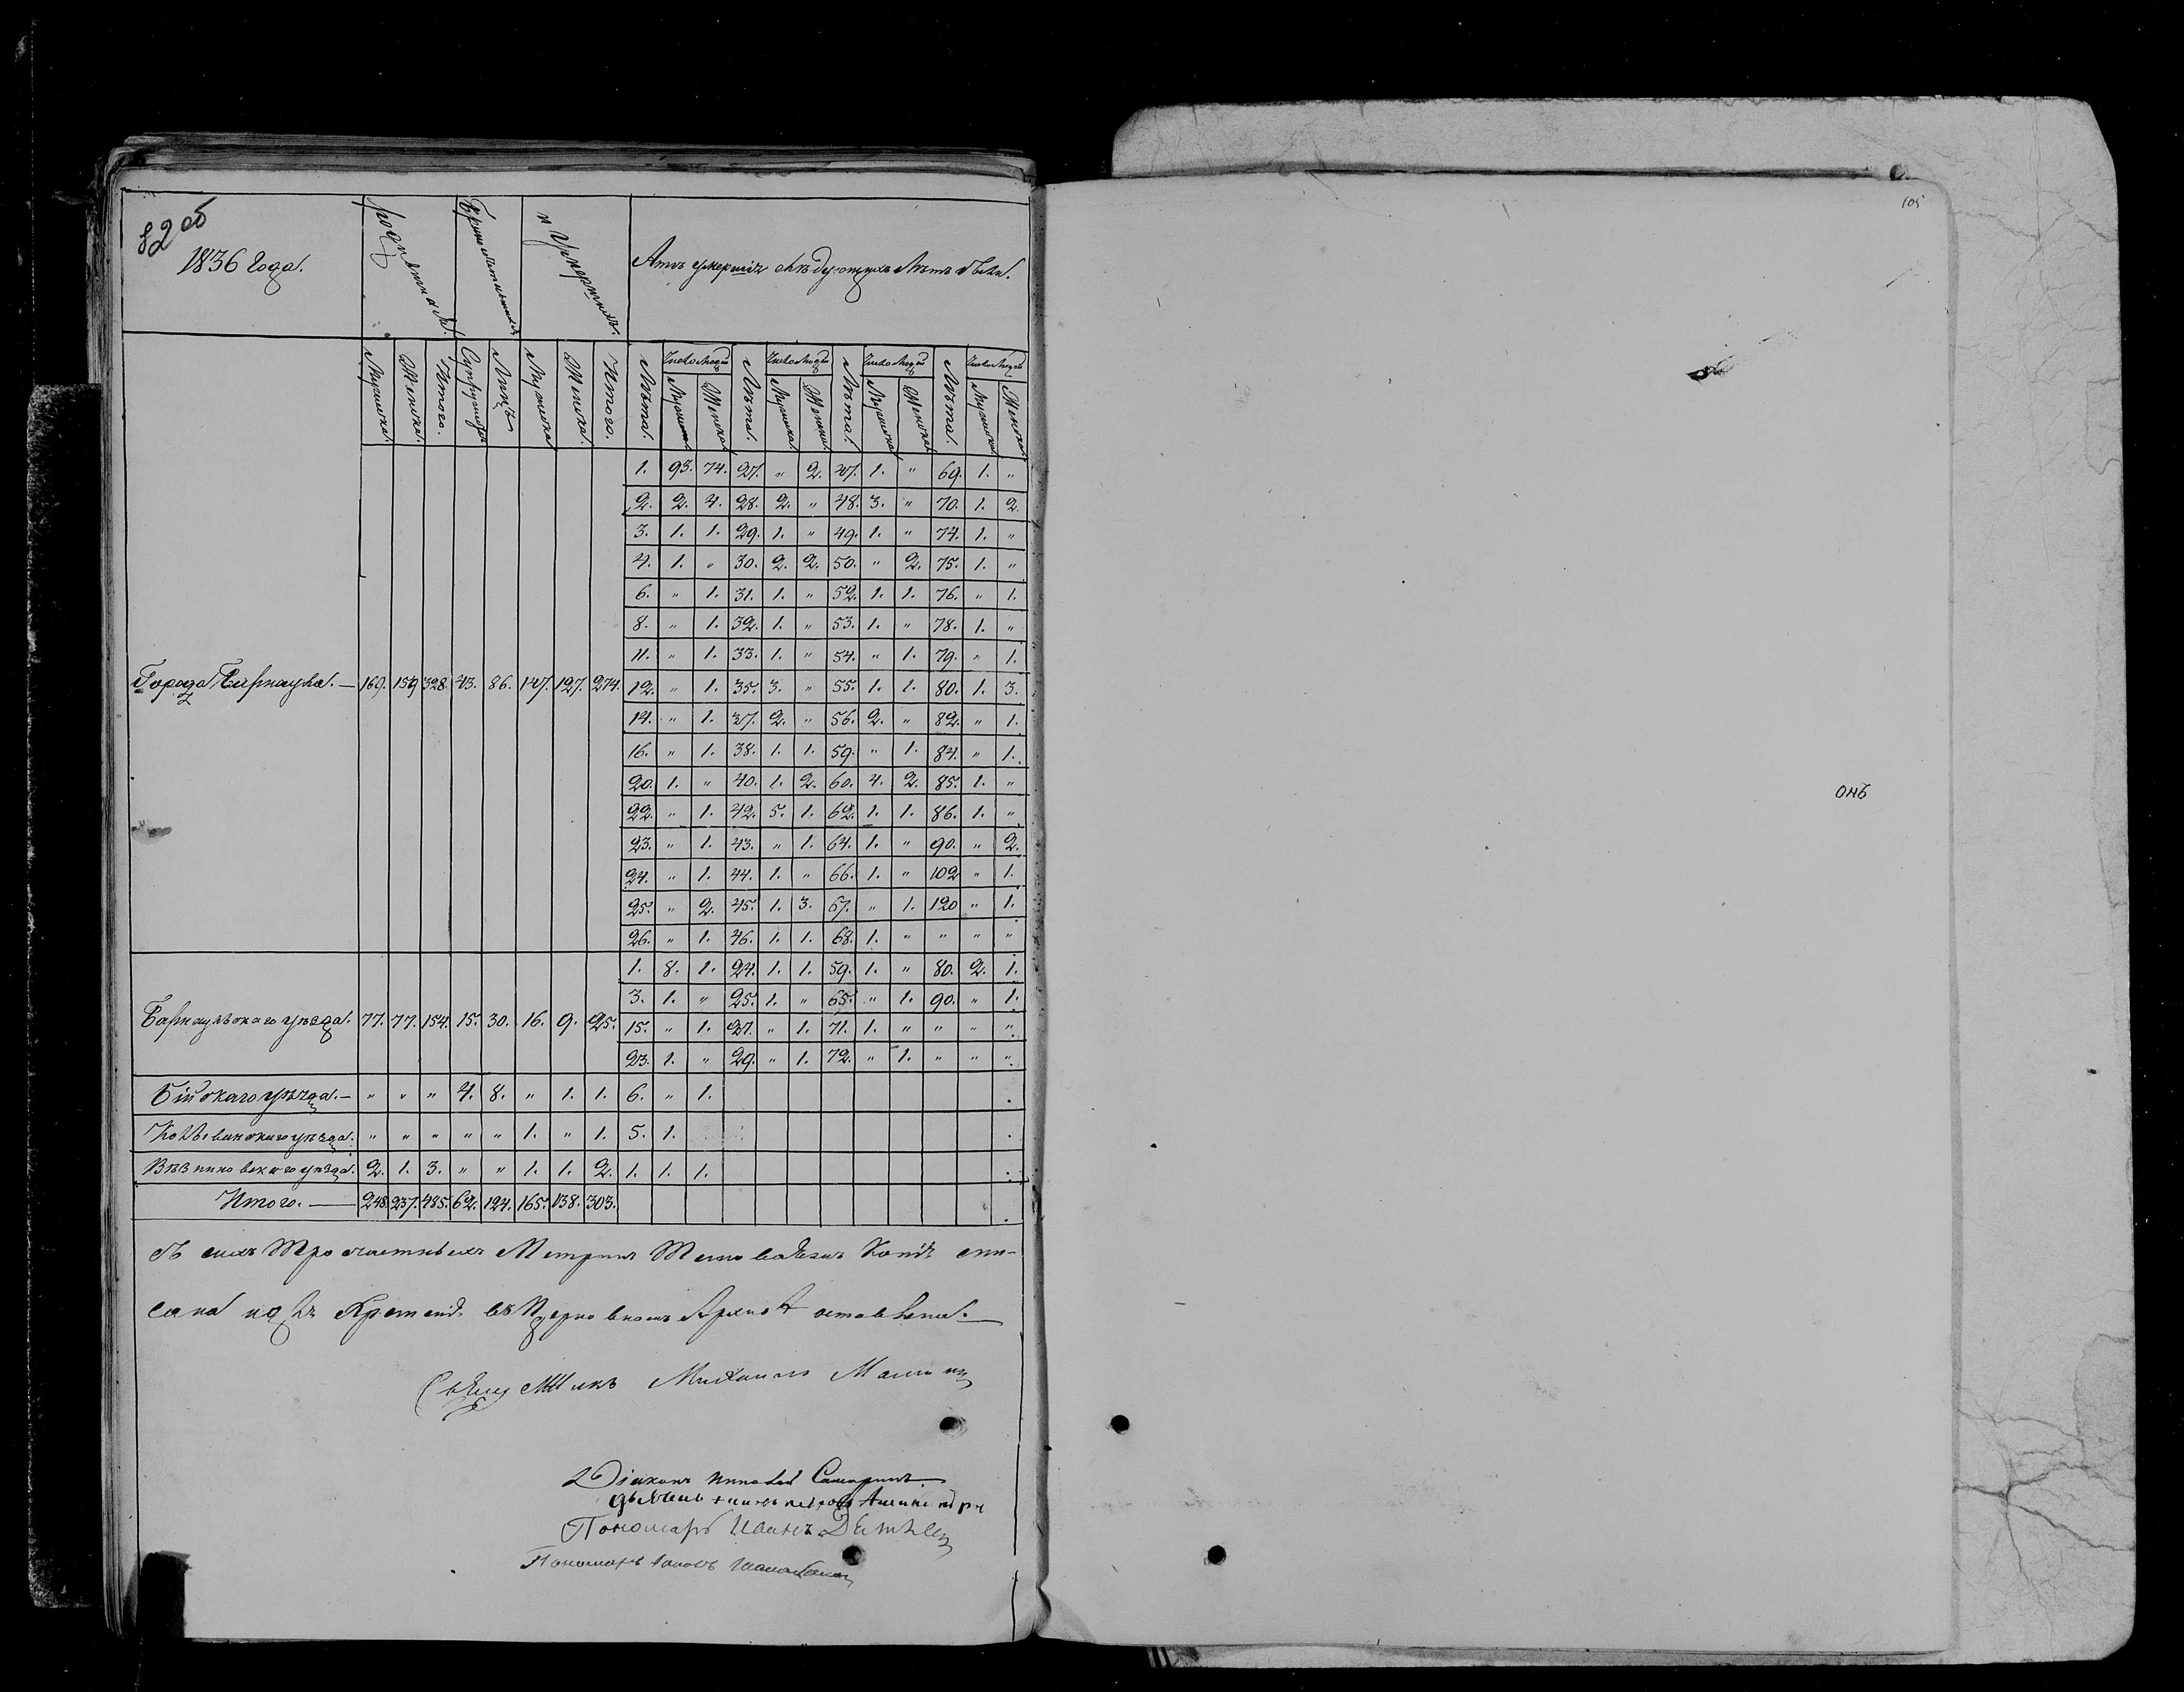 82 об
1836 Года.
рожденныхъ.
Бракосочетавшихся
и Умершихъ.
Лѣтъ умершіе следующихъ Лѣтъ были.
Мужеска. Женска. Итого. Супружествъ Лицъ Мужеска Женска. Итого. Лѣта. Число Людей Лѣта. Число Людей Лѣта. Число Людей Лѣта. Число Людей
Мужеска Женска Мужеска Женска Мужеска Женска Мужеска Женска
1. 93. 74. 27. " 2. 47. 1. " 69. 1. "
2. 2. 4. 28. 2. " 48. 3. " 70. 1. 2.
3. 1. 1. 29. 1. " 49. 1. " 74. 1. "
4. 1. " 30. 2. 2. 50. " 2. 75. 1. "
6. " 1. 31. 1. " 52. 1. 1. 76. " 1.
8. " 1. 32. 1. " 53. 1. " 78. 1. "
11. " 1. 33. 1. " 54. " 1. 79. " 1.
Города Барнаула. — 169. 159 328. 43. 86. 147. 127. 274. 12. " 1. 35. 3. " 55. 1. 1. 80. 1. 3.
14. " 1. 37. 2. " 56. 2. " 82. " 1.
16. " 1. 38. 1. 1. 59. " 1. 84. " 1.
20. 1. " 40. 1. 2. 60. 4. 2. 85. 1. "
22. " 1. 42. 5. 1. 62. 1. 1. 86. 1. "
23. " 1. 43. " 1. 64. 1. " 90. " 2.
24. " 1. 44. 1. " 66. 1. " 102 " 1.
25. " 2. 45. 1. 3. 67. " 1. 120 " 1.
26. " 1. 46. 1. 1. 68. 1. " " " "
1. 8. 1. 24. 1. 1. 59. 1. " 80. 2. 1.
3. 1. " 25. 1. " 65. " 1. 90. " 1.
Барнаульскаго уѣзда. 77. 77. 154. 15. 30. 16. 9. 25. 15. " 1. 27. " 1. 71. 1. " " " "
23. 1. " 29. " 1. 72. " 1. " " "
Бійскаго уѣзда. — " " " 4. 8. " 1. 1. 6. " 1.
Колыванскаго уѣзда. " " " " " 1. " 1. 5. 1.
Кузнецкаго уѣзда. 2. 1. 3. " " 1. 1. 2. 1. 1. 1.
Итого. — 248. 237. 485. 62. 124. 165. 138. 303.
Съ сихъ Трочастныхъ Метрикъ копія спи-
сана и въ Церковномъ Архивѣ оставлена.
Священникъ Михаилъ
Діаконъ Самаринъ
Пономарь Иванъ
Пономарь
105
онъ